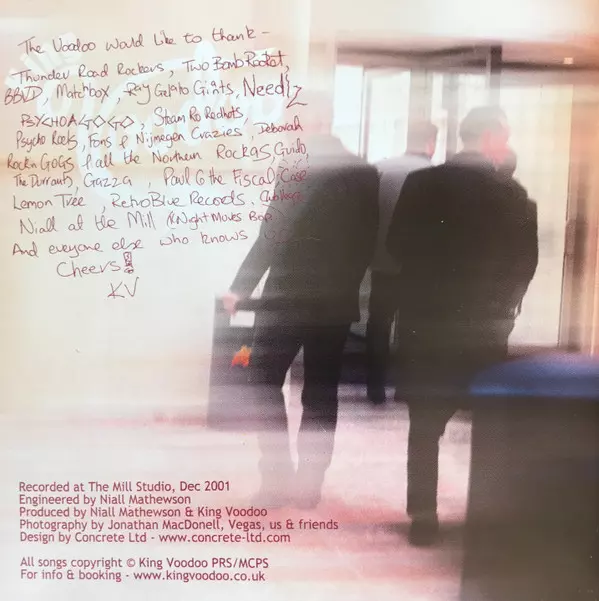 The Voodoo Would Like to thank -
Thunder Road Rockers, Two Bomb Rocket,
BBVD, Matchbox, Ray Gelato Giants, Needlz
PSYCHOAGOGO, Steam Ro Redhots,
Psycho Rocks, Fons & Nijmegen Crazies Deborah
Rock n GoGs & all the Northern Rockas, Guido,
The Durrants, Gazza, Paul G the Fiscal Case
Lemon Tree RetroBlue Records.
Niall at the Mill (KNight Moves Bop)
And everyone else who knows
Cheers!
KV
Recorded at The Mill Studio, Dec 2001
Engineered by Niall Mathewson
Produced by Niall Mathewson & King Voodoo
Photography by Jonathan MacDonell, Vegas, us & friends
Design by Concrete Ltd - www.concrete-ltd.com
All songs copyright © King Voodoo PRS/MCPS
For info & booking - www.kingvoodoo.co.uk